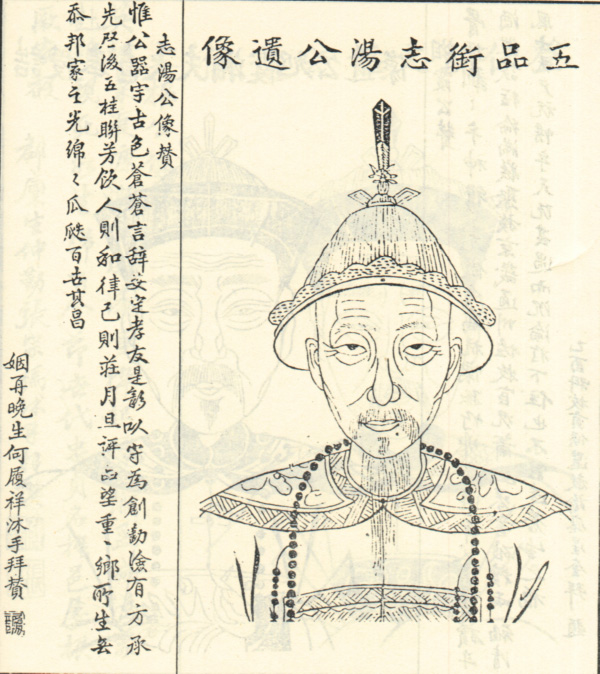 五品銜志湯公遺像
志湯公像贊
惟公器宇古色蒼蒼言辞安定孝友是彰以守為創勤儉有方承
先啓後五桂聯芳飲人則和律己則莊月旦評正望重一鄉所生無
忝邦家之光綿々瓜瓞百世其昌
姻再晚生何履祥沐手拜贊